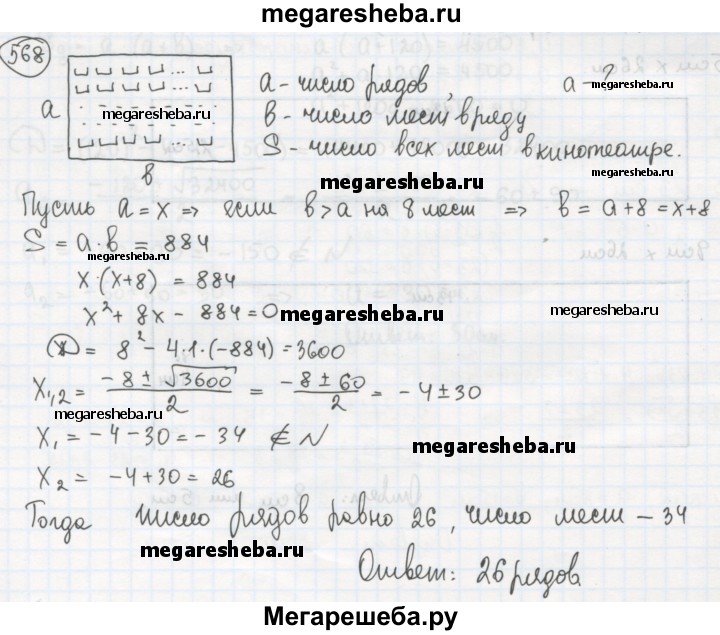 megaresheba.ru
568
a - число рядов, a - ?
megaresheba.ru
a
megaresheba.ru
b - число мест в ряду
S - число всех мест в кинотеатре.
megaresheba.ru
b
megaresheba.ru
Пусть a = x ⇒ если b > a на 8 мест ⇒ b = a + 8 = x + 8
S = a · b = 884
megaresheba.ru
x · (x + 8) = 884
x² + 8x - 884 = 0
megaresheba.ru
megaresheba.ru
= 8² - 4·1·(-884) = 3600
x₁,₂ = (-8 ± √3600)/2 = (-8 ± 60)/2 = -4 ± 30
megaresheba.ru
x₁ = -4 - 30 = -34 ∉ N
megaresheba.ru
x₂ = -4 + 30 = 26
Тогда число рядов равно 26, число мест - 34
megaresheba.ru
megaresheba.ru
Ответ: 26 рядов
Мегарешеба.ру